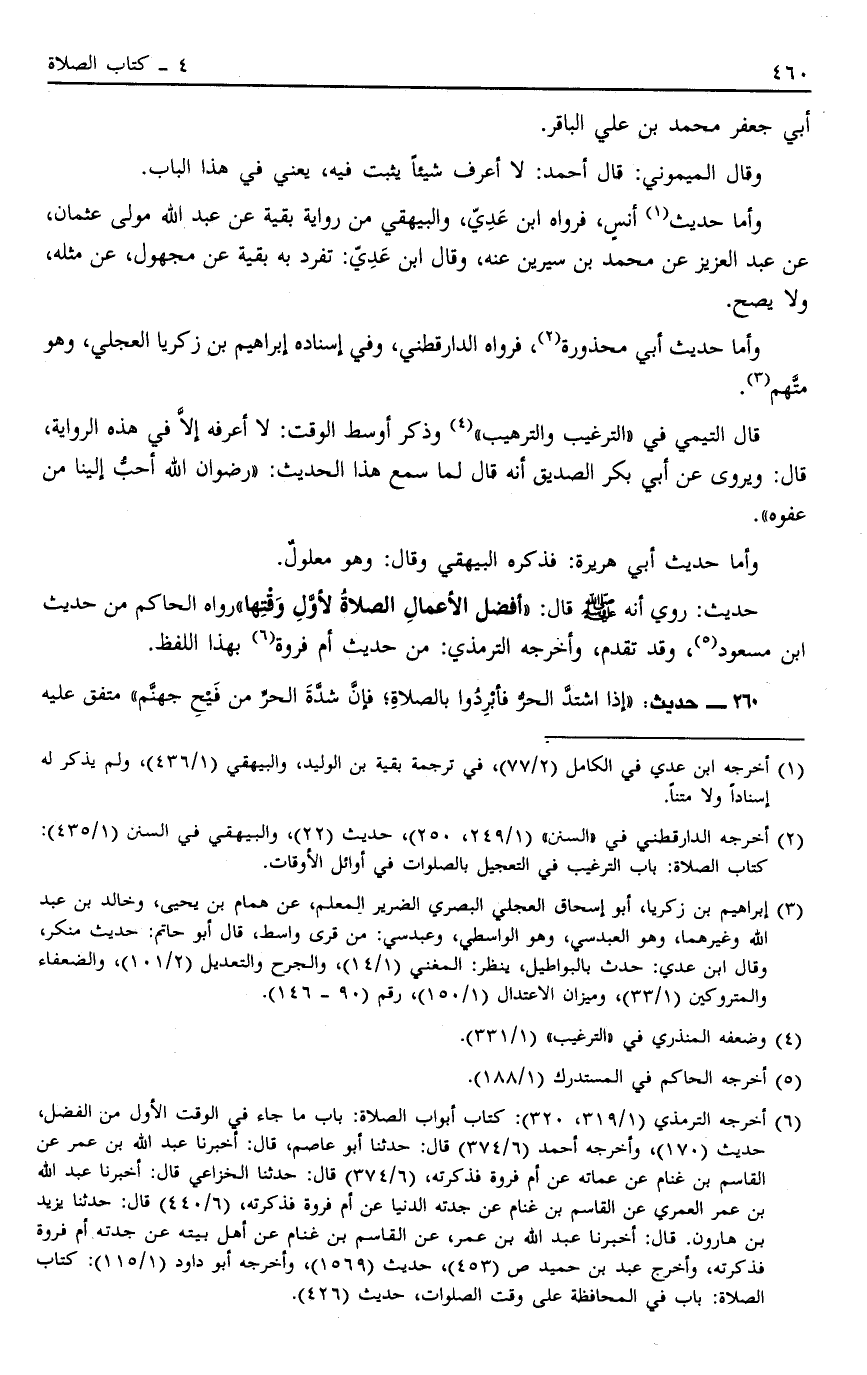 ٤٦٠ ٤ ـ كتاب الصلاة
أبي جعفر محمد بن علي الباقر.
وقال الميموني: قال أحمد: لا أعرف شيئاً يثبت فيه، يعني في هذا الباب.
وأما حديث(١) أنسٍ، فرواه ابن عَدِيّ، والبيهقي من رواية بقية عن عبد الله مولى عثمان،
عن عبد العزيز عن محمد بن سيرين عنه، وقال ابن عَدِيّ: تفرد به بقية عن مجهول، عن مثله،
ولا يصح.
وأما حديث أبي محذورة(٢)، فرواه الدارقطني، وفي إسناده إبراهيم بن زكريا العجلي، وهو
متَّهم(٣).
قال التيمي في «الترغيب والترهيب»(٤) وذكر أوسط الوقت: لا أعرفه إلاَّ في هذه الرواية،
قال: ويروى عن أبي بكر الصديق أنه قال لما سمع هذا الحديث: «رضوان الله أحبُّ إلينا من
عفوه».
وأما حديث أبي هريرة: فذكره البيهقي وقال: وهو معلولٌ.
حديث: روي أنه ﷺ قال: «أفضل الأعمالِ الصلاةُ لأوَّلِ وَقْتِها»رواه الحاكم من حديث
ابن مسعود(٥)، وقد تقدم، وأخرجه الترمذي: من حديث أم فروة(٦) بهذا اللفظ.
٢٦٠ ــ حديث: «إذا اشتدَّ الحرُّ فأبْرِدُوا بالصلاةِ؛ فإنَّ شدَّةَ الحرِّ من فَيْحِ جهنَّم» متفق عليه
(١) أخرجه ابن عدي في الكامل (٧٧/٢)، في ترجمة بقية بن الوليد، والبيهقي (٤٣٦/١)، ولم يذكر له
إسناداً ولا متناً.
(٢) أخرجه الدارقطني في «السنن» (٢٤٩/١، ٢٥٠)، حديث (٢٢)، والبيهقي في السنن (٤٣٥/١):
كتاب الصلاة: باب الترغيب في التعجيل بالصلوات في أوائل الأوقات.
(٣) إبراهيم بن زكريا، أبو إسحاق العجلي البصري الضرير المعلم، عن همام بن يحيى، وخالد بن عبد
الله وغيرهما، وهو العبدسي، وهو الواسطي، وعبدسي: من قرى واسط، قال أبو حاتم: حديث منكر،
وقال ابن عدي: حدث بالبواطيل، ينظر: المغني (١٤/١)، والجرح والتعديل (١٠١/٢)، والضعفاء
والمتروكين (٣٣/١)، وميزان الاعتدال (١٥٠/١)، رقم (٩٠ ـ ١٤٦).
(٤) وضعفه المنذري في «الترغيب» (٣٣١/١).
(٥) أخرجه الحاكم في المستدرك (١٨٨/١).
(٦) أخرجه الترمذي (٣١٩/١، ٣٢٠): كتاب أبواب الصلاة: باب ما جاء في الوقت الأول من الفضل،
حديث (١٧٠)، وأخرجه أحمد (٣٧٤/٦) قال: حدثنا أبو عاصم، قال: أخبرنا عبد الله بن عمر عن
القاسم بن غنام عن عماته عن أم فروة فذكرته، (٣٧٤/٦) قال: حدثنا الخزاعي قال: أخبرنا عبد الله
بن عمر العمري عن القاسم بن غنام عن جدته الدنيا عن أم فروة فذكرته، (٤٤٠/٦) قال: حدثنا يزيد
بن هارون. قال: أخبرنا عبد الله بن عمر، عن القاسم بن غنام عن أهل بيته عن جدته أم فروة
فذكرته، وأخرج عبد بن حميد ص (٤٥٣)، حديث (١٥٦٩)، وأخرجه أبو داود (١١٥/١): كتاب
الصلاة: باب في المحافظة على وقت الصلوات، حديث (٤٢٦).